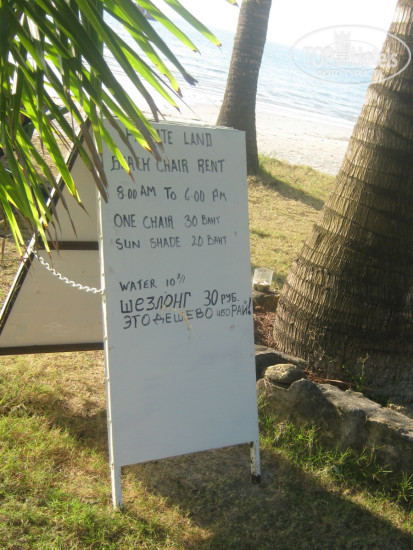 LAND
BEACH CHAIR RENT
8:00 AM TO 6:00 PM
ONE CHAIR 30 BAHT
SUN SHADE 20 BAHT
WATER 10
шезлонг 30 РУБ.
ЭТО ДЕШЕВО ИБО РАЙ!